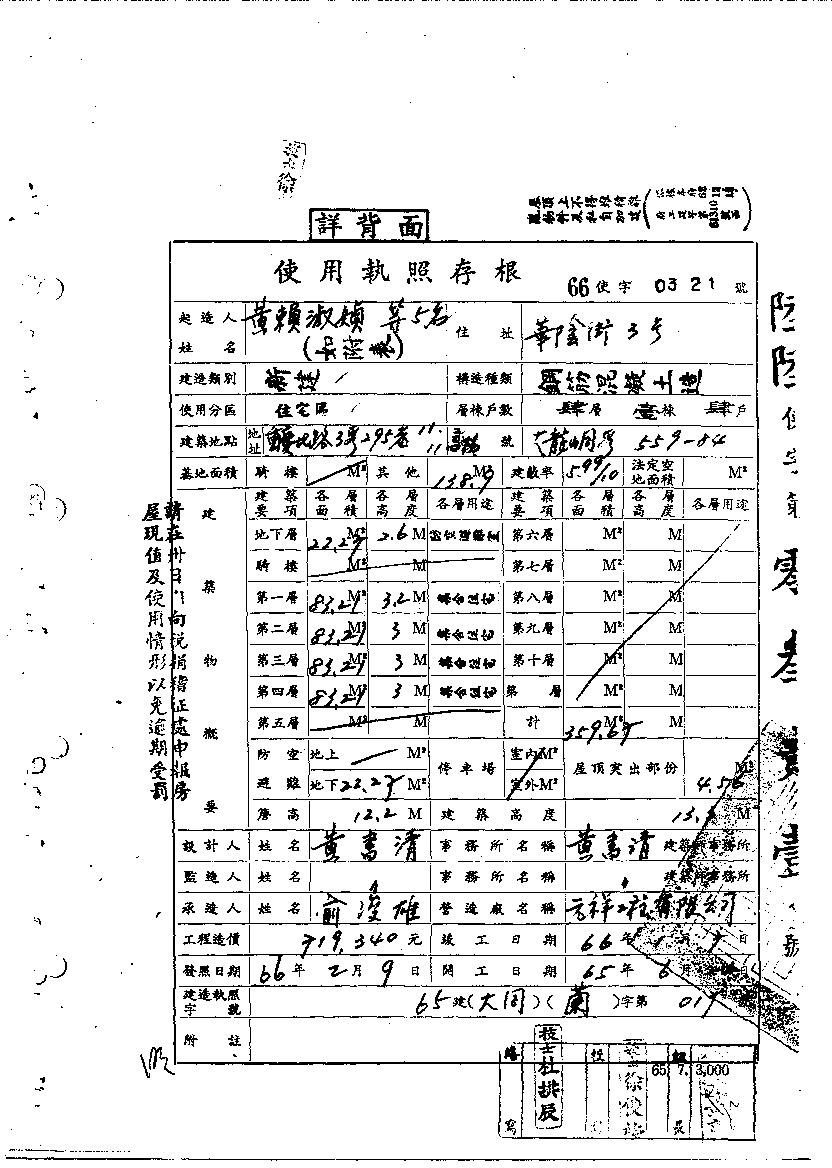 詳背面
使用執照存根
66使字0321號
起造人姓名 黃賴淑媜等5名(如附表) 住址 華陰街3号
建造類別 新建 構造種類 鋼筋混凝土造
使用分區 住宅區 層棟戶數 肆層壹棟肆戶
建築地點 地址 路3号295巷 號 559-84
基地面積 騎樓 M² 其他 138.9 M² 建蔽率 5.99/10 法定空地面積 M²
建築物概要
建築要項 各層面積 各層高度 各層用途 建築要項 各層面積 各層高度 各層用途
地下層 22.27 M² 2.6 M 第六層 M² M
騎樓 M² M 第七層 M² M
第一層 83.27 M² 3.2 M 集合住宅 第八層 M² M
第二層 83.27 M² 3 M 集合住宅 第九層 M² M
第三層 83.27 M² 3 M 集合住宅 第十層 M² M
第四層 83.27 M² 3 M 集合住宅 第 層 M² M
第五層 M² M 計 359.65 M² M
防空避難 地上 M² 停車場 室內 M² 屋頂突出部份 4.56 M²
地下 22.27 M² 室外 M²
簷高 12.2 M 建築高度 M
設計人 姓名 黃書清 事務所名稱 黃書清 建築師事務所
監造人 姓名 事務所名稱 建築師事務所
承造人 姓名 俞浚雄 營造廠名稱 元祥工程有限公司
工程造價 719,340元 竣工日期 66年 月 日
發照日期 66年2月9日 開工日期 65年6月 日
建造執照字號 65建(大同)(蘭)字第 019
附註
請在卅日內向稅捐稽征處申報房
屋現值及使用情形以免逾期受罰
使字第零叁貳壹號
技士杜拱辰
65. 7. 3,000